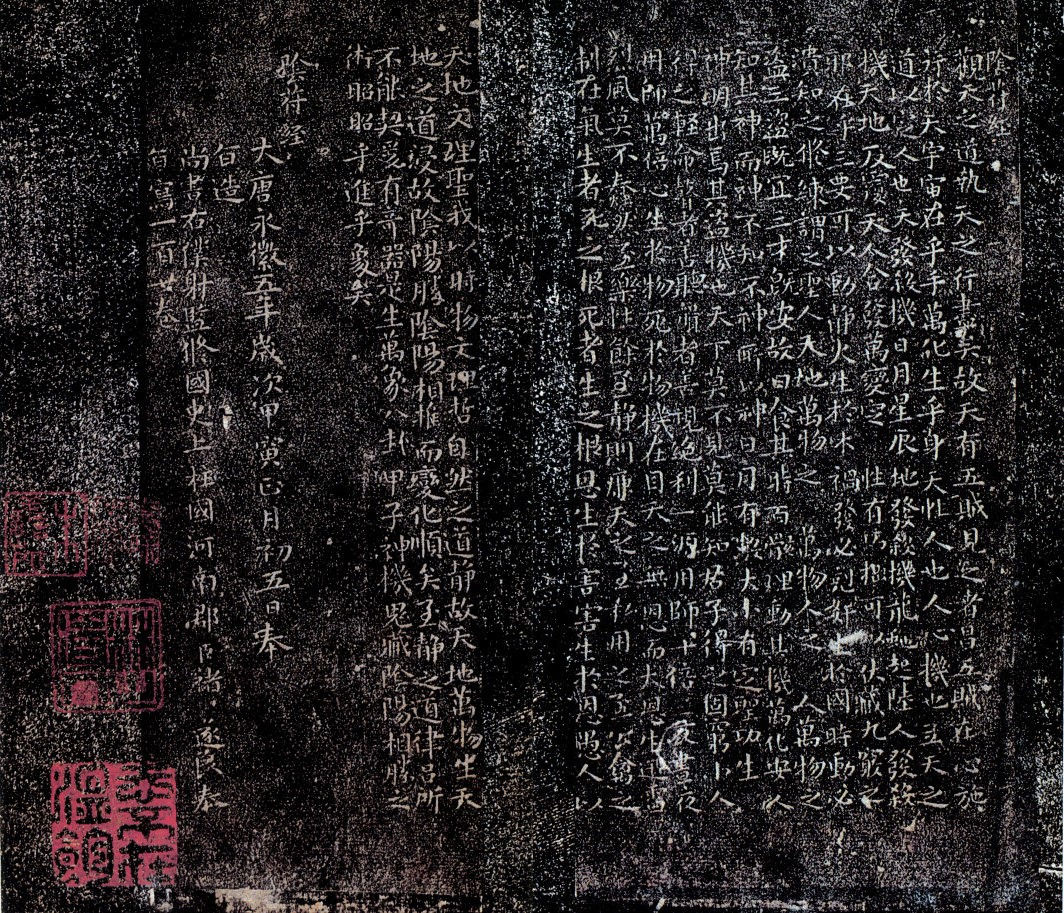 陰符経
觀天之道執天之行盡矣故天有五賊見之者昌五賊在心施
行於天宇宙在乎手萬化生乎身天性人也人心機也立天之
道以定人也天發殺機日月星辰地發殺機龍虵起陸人發殺
機天地反覆天人合發萬變定 性有巧拙可以伏藏九竅之
耶在乎三要可以動静火生於木禍發必尅姧生於國時動必
潰知之修練謂之聖人天地萬物之 萬物人之 人萬物之
盗三盗既宜三才既安故曰食其時百骸理動其機萬化安人
知其神而神不知不神所以神日月有數大小有定聖功生
神明出焉其盗機也天下莫不見莫能知君子得之固窮小人
得之軽命瞽者善聽聾者善視絶利一源用師十倍 反晝夜
用師萬倍心生於物死於物機在目天之無恩而大恩生迅雷
烈風莫不蠢然至樂性餘至静則廉天之至私用之至公禽之
制在氣生者死之根死者生之根恩生於害害生於恩愚人以
天地文理聖我以時物文理哲自然之道静故天地萬物生天
地之道浸故陰陽勝陰陽相推而變化順矣至静之道律吕所
不能契爰有奇器是生萬象八卦甲子神機鬼藏陰陽相勝之
術昭昭乎進乎象矣
陰符経
大唐永徽五年歳次甲寅正月初五日奉
旨造
尚書右僕射監修國史上柱國河南郡臣褚遂良奉
旨寫一百廿卷